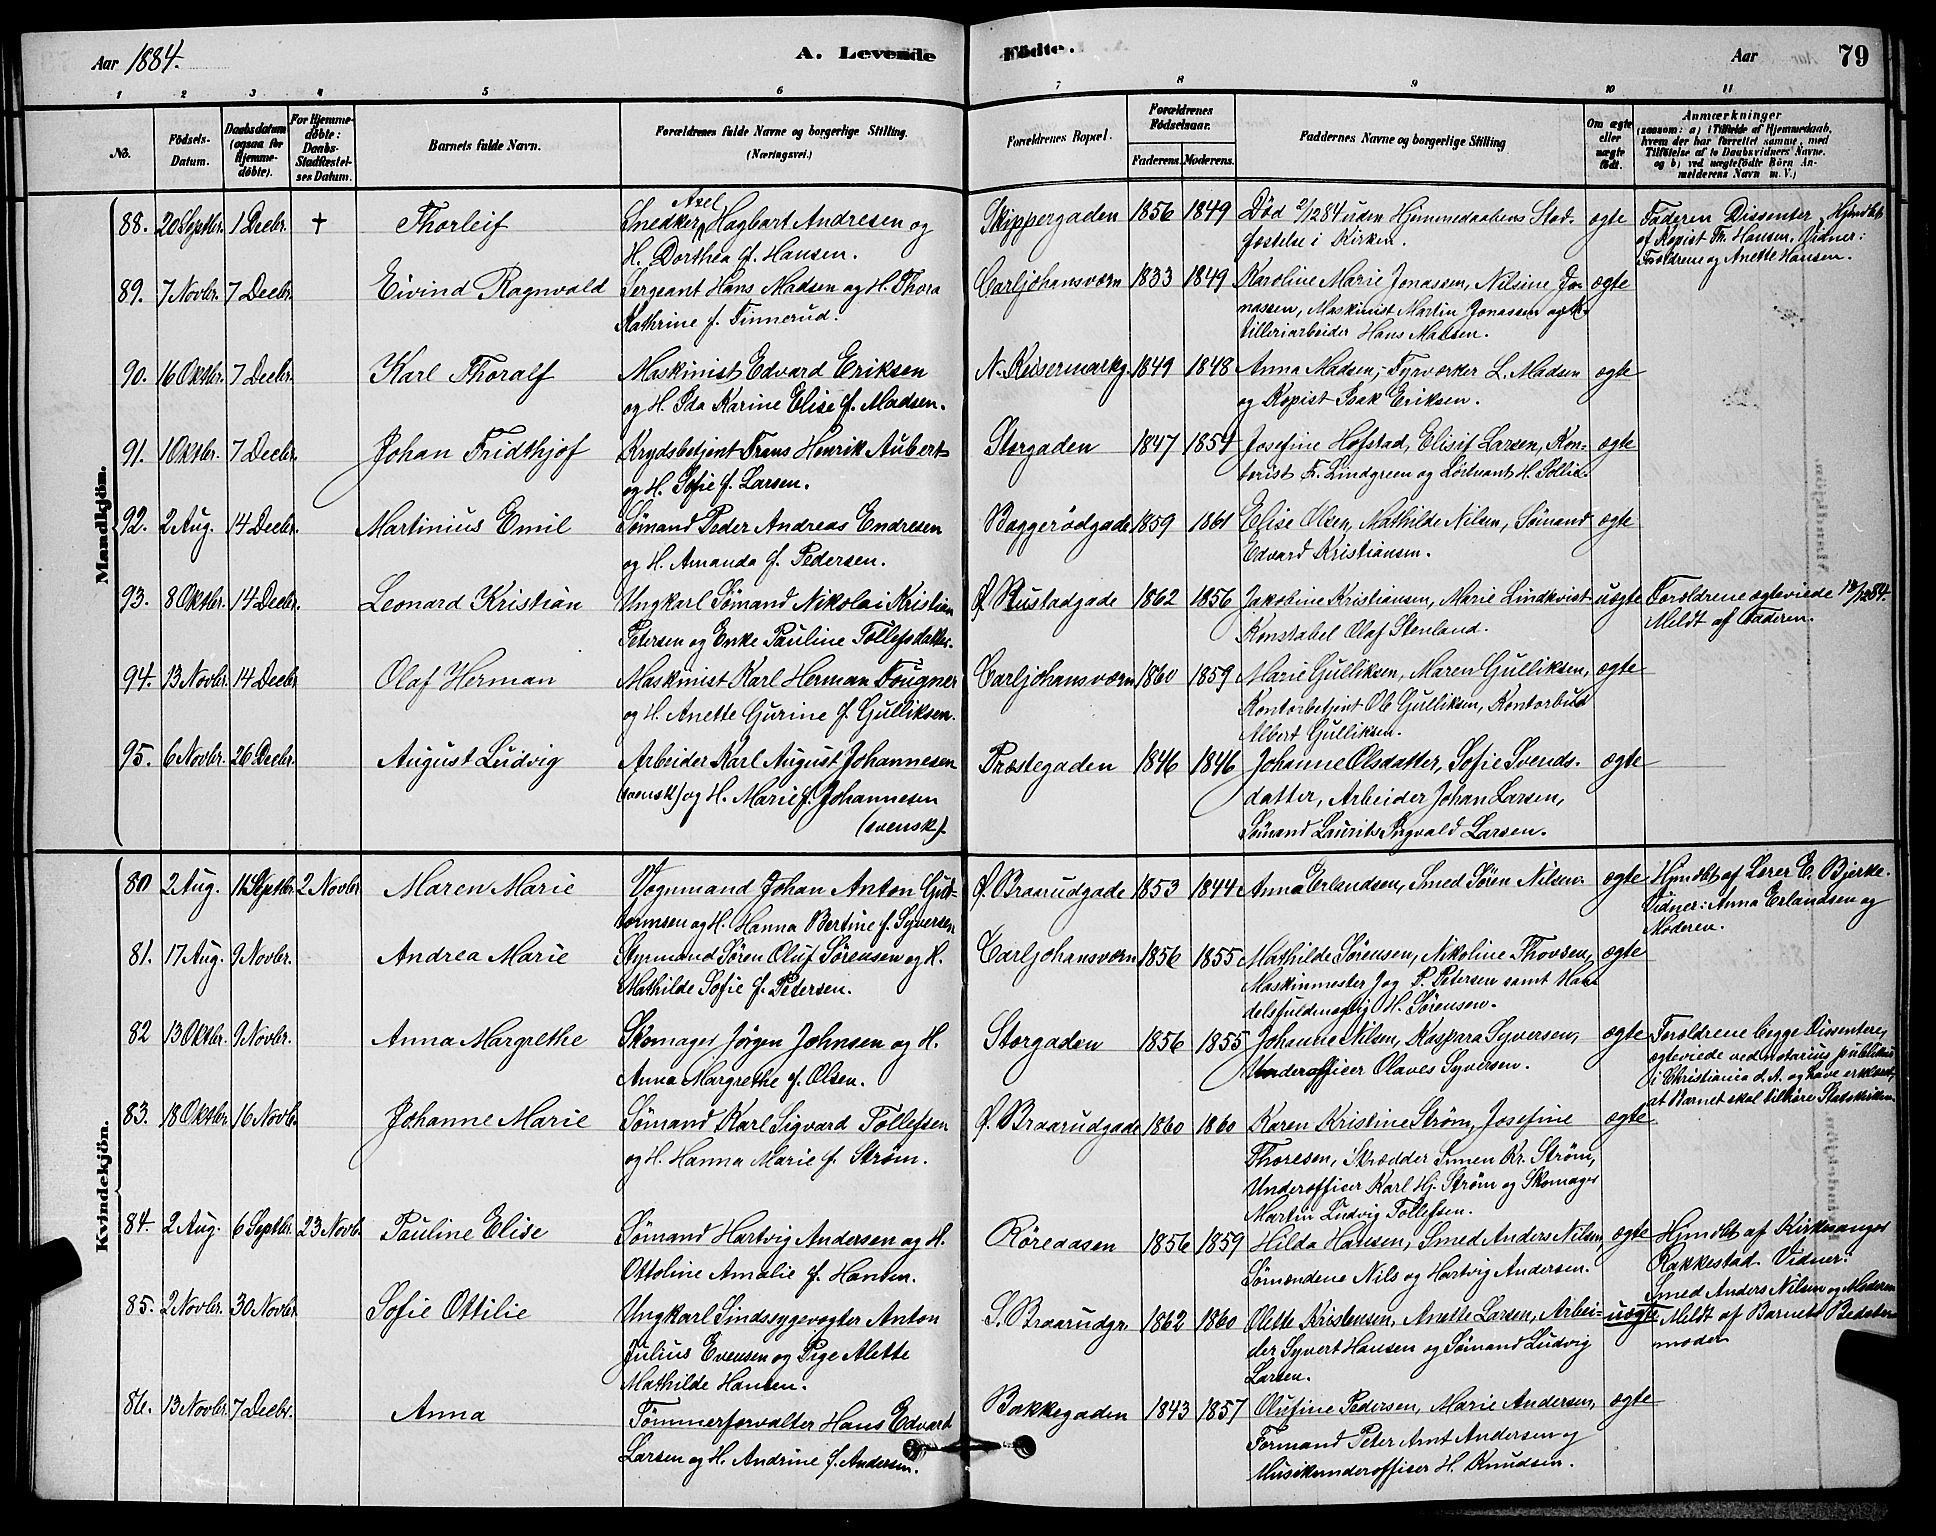 Aar 1884.
A. Levende
Födte.
Aar
79
1 2 3 4 5 6 7 8 9 10 11
No.
Födsels-
Datum.
Daabsdatum
(ogsaa for
Hjemme-
döbte).
For Hjemme-
döbte:
Daabs-
Stadfæstel-
ses Datum.
Barnets fulde Navn.
Forældrenes fulde Navne og borgerlige Stilling.
(Næringsvei.)
Forældrenes Bopæl.
Forældrenes
Födselsaar.
Faderens. Moderens.
Faddernes Navne og borgerlige Stilling
Om ægte
eller
uægte
född.
Anmærkninger
(saasom: a) i Tilfælde af Hjemmedaab,
hvem der har forrettet samme, med
Tilföielse af to Daabsvidners Navne.
og b) ved uægtefödte Börn An-
melderens Navn m. V.)
Mandkjön.
88. 20 Septbr. 1 Decbr. + Thorleif
Axel
Snedker Hagbart Andresen og
H. Dorthea f. Hansen.
Skippergaden 1856 1849
Död 2/12 84 uden Hjemmedaabens Stad-
fæstelse i Kirken.
ægte
Faderen Dissenter. Hjmdbt
af Kopist Th. Hansen. Vidner:
Forældrene og Anette Hansen.
89. 7 Novbr. 7 Decbr. Eivind Ragnvald
Sergeant Hans Madsen og H. Thora
Kathrine f. Finnerud.
Carljohansværn 1833 1849
Karoline Marie Jonassen, Nilsine Jo-
nassen, Maskinist Martin Jonassen og Ar-
tilleriarbeider Hans Madsen.
ægte
90. 16 Oktbr. 7 Decbr. Karl Thoralf
Maskinist Edvard Eriksen
og H. Ida Karine Elise f. Madsen.
N. Keisermarkg. 1849 1848
Anna Madsen, Fyrværker L. Madsen
og Kopist Isak Eriksen.
ægte
91. 1 Oktbr. 7 Decbr. Johan Fridthjof
Krydsbetjent Frans Henrik Aubert
og H. Sofie f. Larsen.
Storgaden 1847 1854
Josefine Hofstad, Elisif Larsen, Kon-
torist F. Lindgreen og Löitnant H. Sollie.
ægte
92. 2 Aug. 14 Decbr. Martinius Emil
Sömand Peder Andreas Endresen
og H. Amanda f. Pedersen.
Baggerödgade 1859 1861
Elise Olsen, Mathilde Nilsen, Sömand
Edvard Kristiansen.
ægte
93. 8 Oktbr. 14 Decbr. Leonard Kristian
Ungkarl Sömand Nikolai Kristian
Petersen og Enke Pauline Tollefsdatter.
Ø. Rustadgade 1862 1856
Jakobine Kristiansen, Marie Lindkvist
Konstabel Olaf Stenland.
uægte
Forældrene ægteviede 18/12 84.
Meldt af Faderen.
94. 13 Novbr. 14 Decbr Olaf Herman
Maskinist Karl Herman Fougner
og H. Anette Gurine f. Gulliksen.
Carljohansværn 1860 1859
Marie Gulliksen, Maren Gulliksen,
Kontorbetjent Ole Gulliksen, Kontorbud
Albert Gulliksen.
ægte
95. 6 Novbr. 26 Decbr. August Ludvig
Arbeider Karl August Johannesen
(svensk) og H. Marie f. Johannesen
(svensk).
Præstegaden 1846 1846
Johanne Olsdatter, Sofie Svends-
datter, Arbeider Johan Larsen,
Sömand Laurits Ingvald Larsen.
ægte
Kvindekjön.
80 2 Aug. 11 Septbr. 2 Novbr. Maren Marie
Vognmand Johan Anton Gut-
tormsen og H. Hanna Bertine f. Syversen
Ø. Braarudgade 1853 1844
Anna Erlandsen, Smed Sören Nilsen.
ægte
Hjmdbt af Lærer E. Bjerke.
Vidner: Anna Erlandsen og
Moderen.
81. 17 Aug. 9 Novbr. Andrea Marie
Styrmand Sören Oluf Sörensen og H.
Mathilde Sofie f. Petersen.
Carljohansværn 1856 1855
Mathilde Sörensen, Nikoline Thovsen,
Maskinmester Jag P. Petersen samt Han-
delsfuldmægtig H. Sörensen.
ægte
82 13 Oktbr. 9 Novbr. Anna Margrethe
Skomager Jörgen Johnsen og H.
Anna Margrethe f. Olsen.
Storgaden 1856 1855
Johanne Nilsen, Kaspara Syversen,
Underofficer Olaves Syversen.
ægte
Forældrene begge Dissentere,
ægteviede ved notarius publikus
i Christiania d. A. og have erklæret,
at Barnet skal tilhöre Statskirken.
83. 18 Oktbr. 16 Novb. Johanne Marie
Sömand Karl Sigvard Tollefsen
og H. Hanna Marie f. Ström.
Ø. Braarudgade 1860 1860
Karen Kristine Ström, Josefine
Thoresen, Skrædder Simen Kr. Ström,
Underofficer Karl Hj. Ström og Skomager
Martin Ludvig Tollefsen.
ægte
84. 2 Aug. 6 Septbr. 23 Novb. Pauline Elise
Sömand Hartvig Andersen og H.
Ottoline Amalie f. Hansen.
Röreaasen 1856 1859
Hilda Hansen, Smed Anders Nilsen,
Sömændene Nils og Hartvig Andersen.
ægte
Hjmdbt af Kirkesanger
Rakkestad. Vidner:
Smed Anders Nilsen og Moderen
85. 2 Novbr. 30 Novbr. Sofie Ottilie
Ungkarl Sindssygevogter Anton
Julius Evensen og Pige Alette
Mathilde Hansen.
S. Braarudgr. 1862 1860
Olette Kristensen, Anette Larsen, Arbei-
der Syvert Hansen og Sömand Ludvig
Larsen.
uægte
Meldt af Barnets Bedste-
moder
86. 13 Novbr. 7 Decbr. Anna
Tömmerforvalter Hans Edvard
Larsen og H. Andrine f. Andersen.
Bakkegaden 1843 1857
Olufine Pedersen, Marie Andersen,
Formand Peter Arnt Andersen og
Musikunderofficer H. Knudsen.
ægte